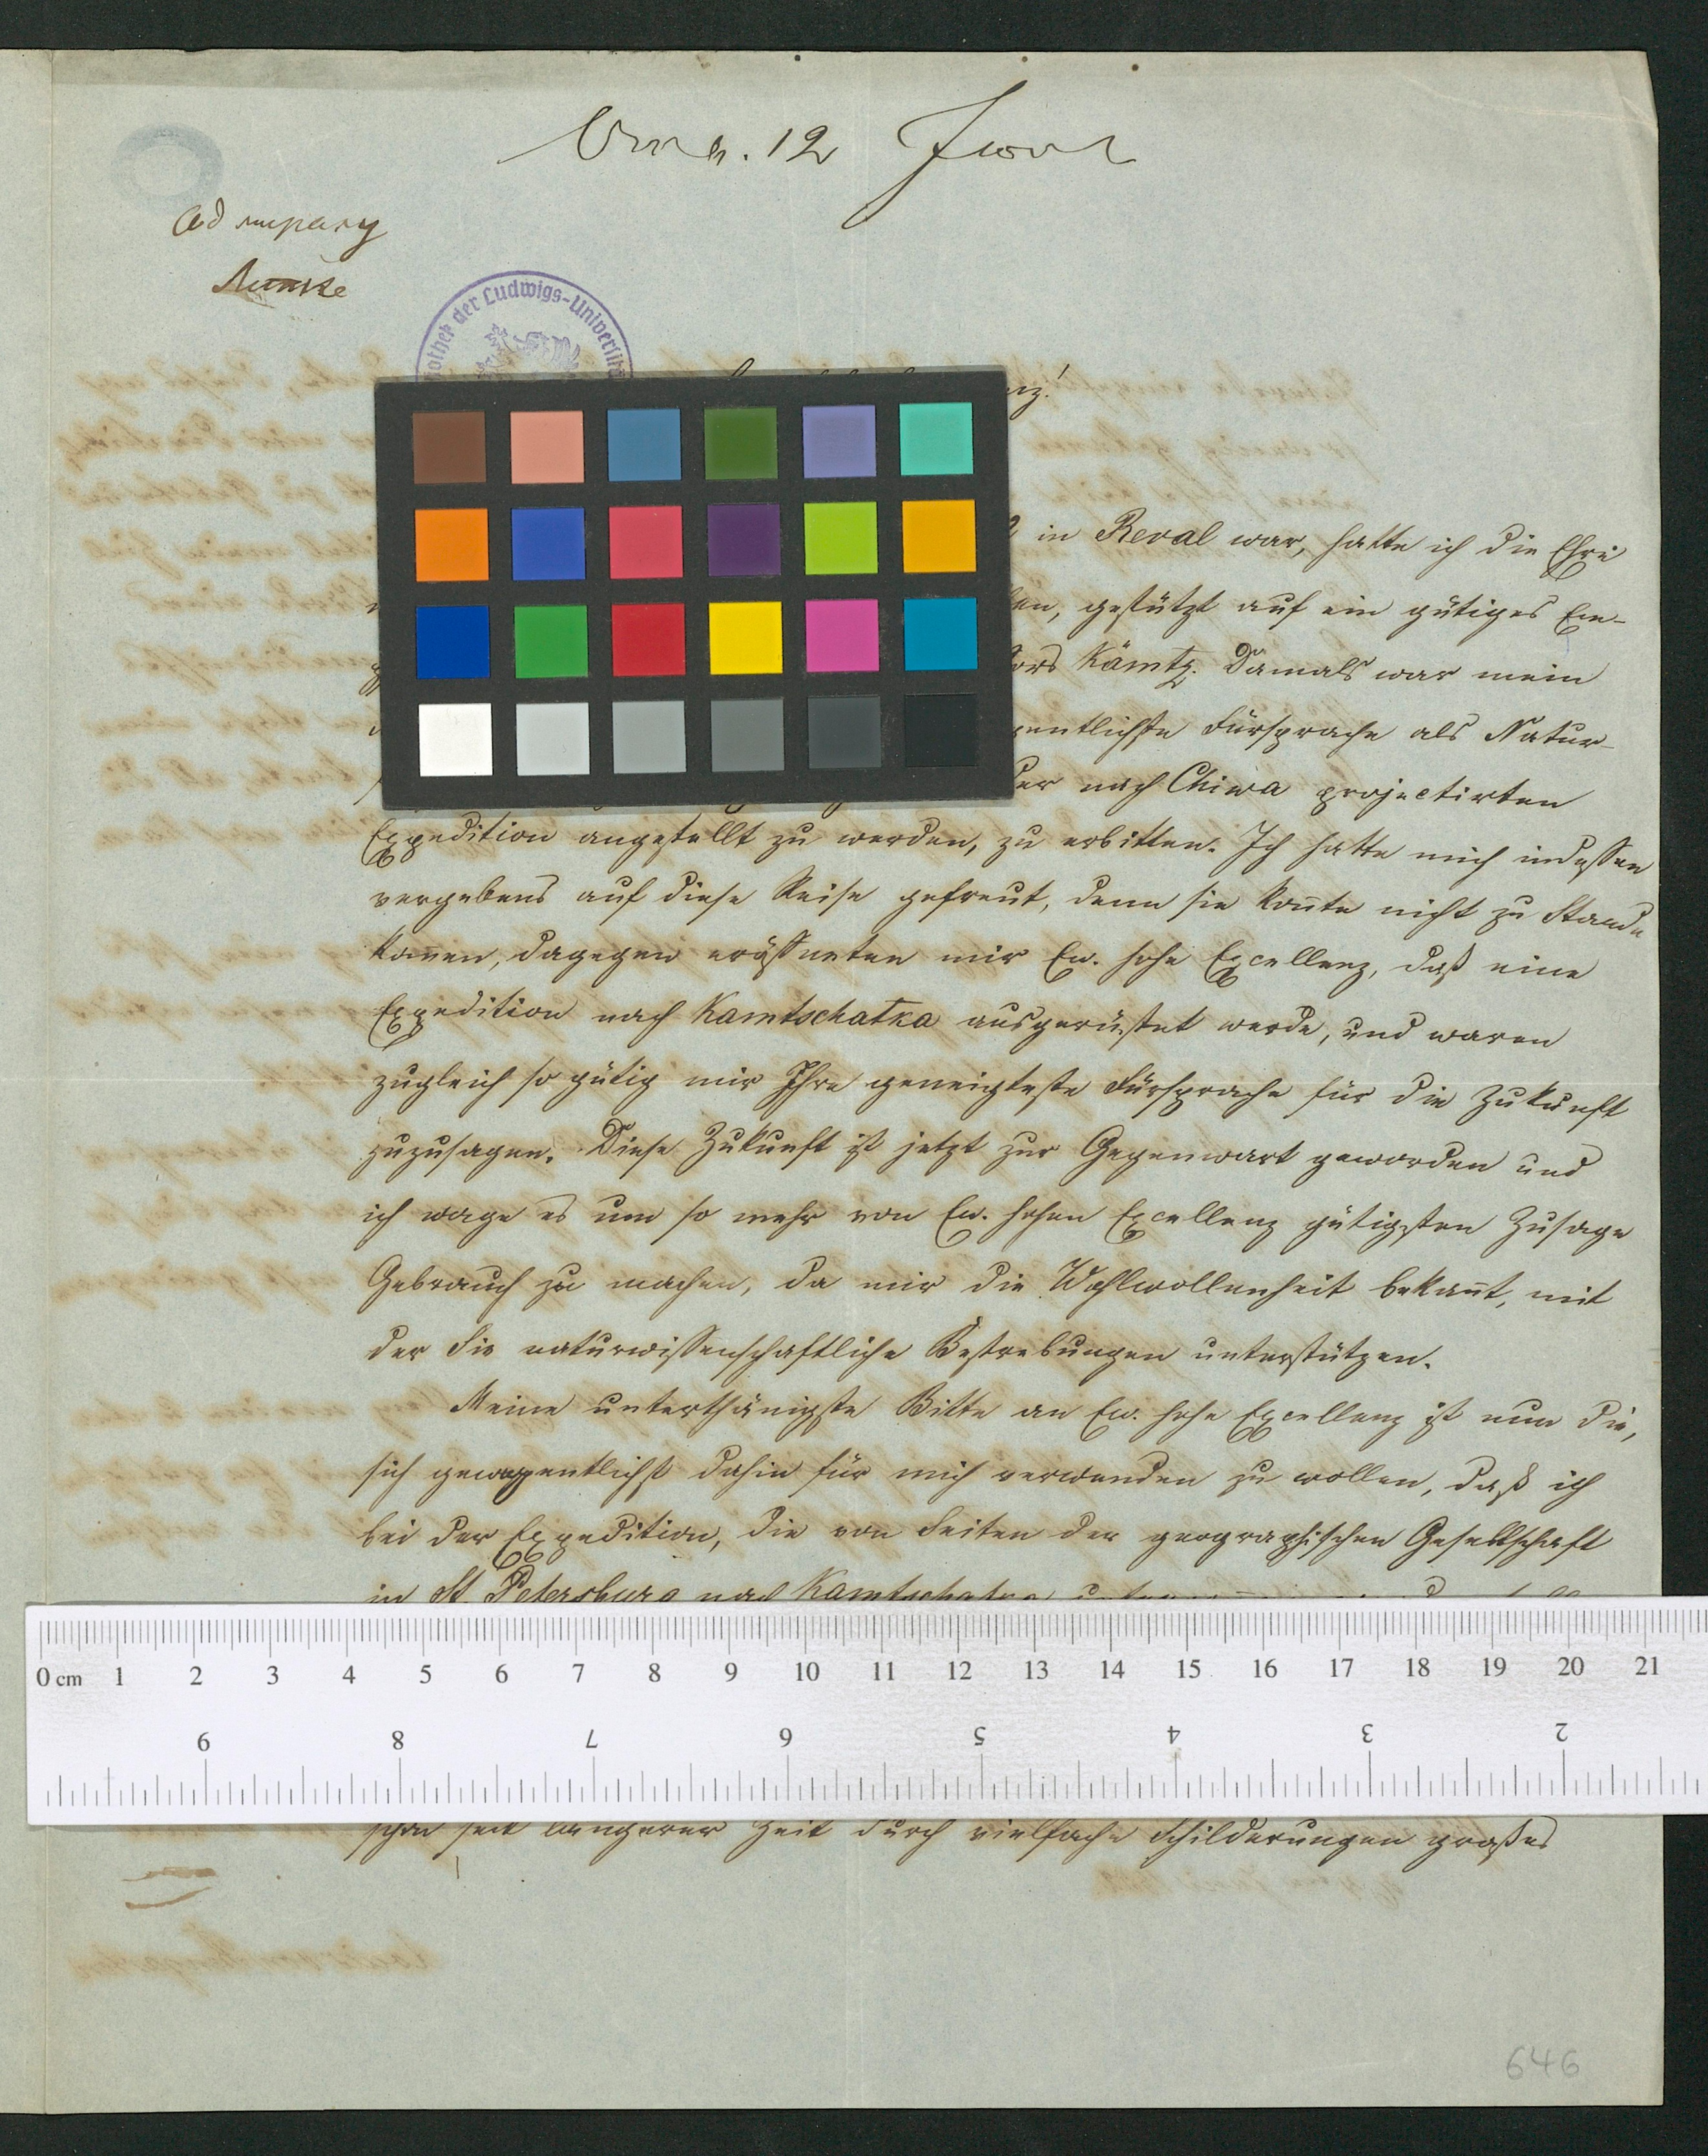 12
Адмиралу
Литке
othek der Ludwigs-Universität
nz!
in Reval war, hatte ich die Ehre
en, gestützt auf ein gütiges Em-
ors Kämtz. Damals war mein
gentlichste Fürsprache als Natur-
der nach Chiwa projectirten
Expedition angestellt zu werden, zu erbitten. Ich hatte mich indessen
vergebens auf diese Reise gefreut, denn sie kon̅te nicht zu Stande
kom̅en, dagegen eröffneten mir Ew. hohe Excellenz, daß eine
Expedition nach Kamtschatka ausgerüstet werde, und waren
zugleich so gütig mir Ihre geneigteste Fürsprache für die Zukunft
zuzusagen. Diese Zukunft ist jetzt zur Gegenwart geworden und
ich wage es um so mehr von Ew. hohen Excellenz gütigsten Zusage
Gebrauch zu machen, da mir die Wohlwollenheit bekan̅t, mit
der Sie naturwissenschaftliche Bestrebungen unterstützen.
Meine unterthänigste Bitte an Ew. hohe Excellenz ist nun die,
sich gewogentlichst dahin für mich verwenden zu wollen, daß ich
bei der Expedition, die von Seiten der geographischen Gesellschaft
in St. Petersburg nach Kamtschatka
schon seit längerer Zeit durch vielfache Schilderungen großes
646
0 cm 1 2 3 4 5 6 7 8 9 10 11 12 13 14 15 16 17 18 19 20 21
9 8 7 6 5 4 3 2